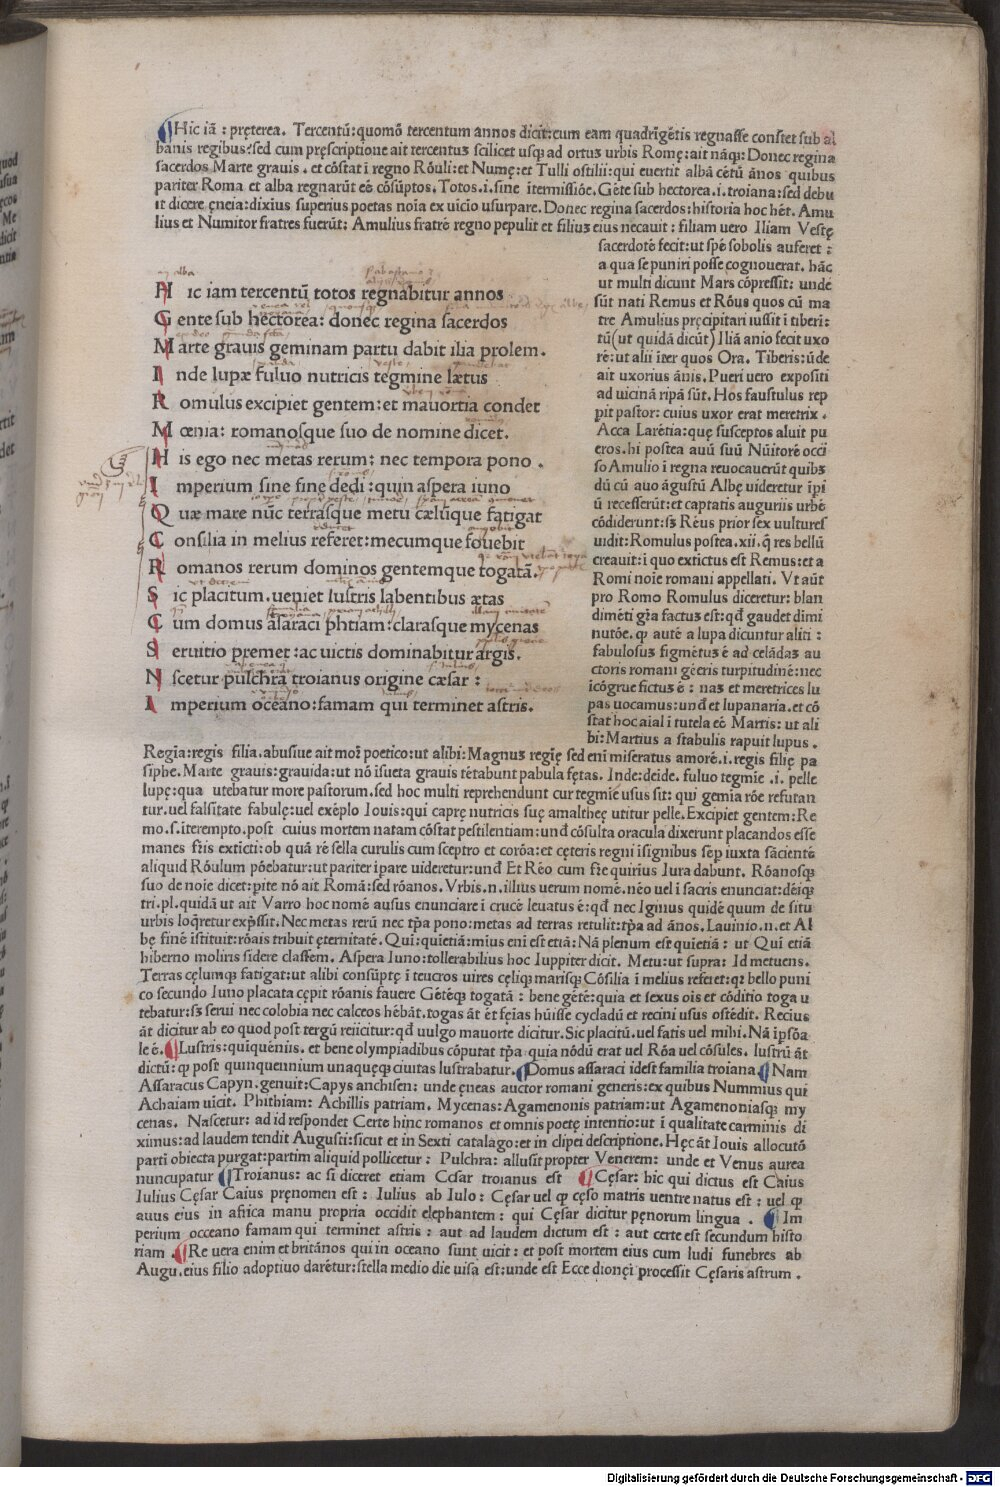 Hic iā : pręterea. Tercentū: quomō tercentum annos dicit: cum eam quadrīgētis regnasse constet sub al
banis regibus: sed cum pręscriptione ait tercentuʒ scilicet usqʒ ad ortuʒ urbis Romę: ait nāqʒ: Donec regina
sacerdos Marte grauis . et cōstat ī regno Rōuli: et Numę: et Tulli ostilii: qui euertit albā cētū ānos quibus
pariter Roma et alba regnarūt eē cōsūptos. Totos .i. sine ītermissiōe. Gēte sub hectorea .i. troiana: sed debu
it dicere ęneia: dixius superius poetas noīa ex uicio usurpare. Donec regina sacerdos: historia hoc hēt. Amu
lius et Numitor fratres fuerūt: Amulius fratrē regno pepulit et filiuʒ eius necauit : filiam uero Iliam Vestę
sacerdotē fecit: ut spē sobolis auferet :
a qua se puniri posse cognouerat. hāc
ut multi dicunt Mars cōpressit: unde
sūt nati Remus et Rōus quos cū ma
tre Amulius pręcipitari iussit ī tiberī:
tū(ut quidā dicūt) Iliā anio fecit uxo
rē: ut alii īter quos Ora. Tiberis: ūde
ait uxorius ānis. Pueri uero expositi
ad uicinā ripā sūt. Hos faustulus rep
pit pastor: cuius uxor erat meretrix .
Acca Larētia: quę susceptos aluit pu
eros. hi postea auū suū Nūitorē occi
so Amulio ī regna reuocauerūt quibʒ
dū cū auo āgustū Albę uideretur īpi
ū recesserūt: et captatis auguriis urbē
cōdiderunt: sʒ Rēus prior sex uultures
uidit: Romulus postea .xii. q̄ res bellū
creauit: ī quo extictus est Remus: et a
Romi noīe romani appellati. Vt aūt
pro Romo Romulus diceretur: blan
dimēti gr̄a factus est: qđ gaudet dimi
nutōe. qp autē a lupa dicuntur aliti :
fabulosuʒ figmētuʒ ē ad celādaʒ au
ctoris romani gēeris turpitudinē: nec
īcōgrue fictuʒ ē : naʒ et meretrices lu
pas uocamus: unđ et lupanaria. et cō
stat hoc aīal ī tutela eē Martis: ut ali
bi: Martius a stabulis rapuit lupus .
H ic iam tercentū totos regnabitur annos
G ente sub hectorea: donec regina sacerdos
M arte grauis geminam partu dabit ilia prolem.
I nde lupæ fuluo nutricis tegmine lætus
R omulus excipiet gentem: et mauortia condet
M œnia: romanosque suo de nomine dicet.
H is ego nec metas rerum: nec tempora pono .
I mperium sine fine dedi : quin aspera iuno
Q uæ mare nūc terrasque metu cælūque fatigat
C onsilia in melius referet: mecumque fouebit
R omanos rerum dominos gentemque togatā.
S ic placitum. ueniet lustris labentibus ætas
C um domus assaraci phtiam: clarasque mycenas
S eruitio premet: ac uictis dominabitur argis.
N scetur pulchra troianus origine cæsar :
I mperium oceano: famam qui terminet astris.
Regīa: regis filia. abusiue ait moř poetico: ut alibi: Magnuʒ regīę sed enī miseratus amorē .i. regis filię pa
siphe. Marte grauis: grauida: ut nō īsueta grauis tētabunt pabula fętas. Inde: deide. fuluo tegmīe .i. pelle
lupę: qua utebatur more pastorum. sed hoc multi reprehendunt cur tegmīe usus sit: qui gemīa rōe refutan
tur. uel falsitate fabulę: uel exēplo Iouis: qui caprę nutricis suę amaltheę utitur pelle. Excipiet gentem: Re
mo .s. īterempto. post cuius mortem natam cōstat pestilentiam: unđ cōsulta oracula dixerunt placandos esse
manes fr̄is exticti: ob quā rē sella curulis cum sceptro et corōa: et cęteris regni īsignibus sēp iuxta sācientē
aliquid Rōulum pōebatur: ut pariter īpare uideretur: unđ Et Rēo cum fr̄e quirius Iura dabunt. Rōanosqʒ
suo de noīe dicet: pite nō ait Romā: sed rōanos. Vrbis .n. illius uerum nomē. nēo uel ī sacris enunciat: dēiqʒ
tri. pl. quidā ut ait Varro hoc nomē ausus enunciare ī crucē leuatus ē: qđ nec Iginus quidē quum de situ
urbis loq̄retur exp̄ssit. Nec metas rerū nec tp̄a pono: metas ad terras retulit: tp̄a ad ānos. Lauinio .n. et Al
bę finē īstituit: rōais tribuit ęternitatē. Qui: quietiā: mīus eni est etiā: Nā plenum est quietiā : ut Qui etiā
hiberno moliris sidere classem. Aspera Iuno: tollerabilius hoc Iuppiter dicit. Metu: ut supra: Id metuens.
Terras cęlumqʒ fatigat: ut alibi consūptę ī teucros uires cęliqʒ marisqʒ Cōsilia ī melius referet: qʒ bello puni
co secundo Iuno placata cępit rōanis fauere Gētēqʒ togatā : bene gētē: quia et sexus oīs et cōditio toga u
tebatur: sʒ serui nec colobia nec calceos hēbāt. togas āt et fęias hūisse cycladū et recini usus ostēdit. Recius
āt dicitur ab eo quod post tergū reiicitur: qđ uulgo mauorte dicitur. Sic placitū. uel fatis uel mihi. Nā īpsōa
le ē. Lustris: quiquēniis. et bene olympiadibus cōputat tp̄a quia nōdū erat uel Rōa uel cōsules. lustrū āt
dictū: qp post quinquennium unaquęqʒ ciuitas lustrabatur. Domus assaraci idest familia troiana. Nam
Assaracus Capyn. genuit: Capys anchisen: unde ęneas auctor romani generis: ex quibus Nummius qui
Achaiam uicit. Phithiam: Achillis patriam. Mycenas: Agamenonis patriam: ut Agamenoniasqʒ my
cenas. Nascetur: ad id respondet Certe hinc romanos et omnis poetę intentio: ut ī qualitate carminis di
ximus: ad laudem tendit Augusti: sicut et in Sexti catalago: et in clipei descriptione. Hęc āt Iouis allocutō
parti obiecta purgat: partim aliquid pollicetur : Pulchra: allusit propter Venerem: unde et Venus aurea
nuncupatur Troianus: ac si diceret etiam Cesar troianus est Cęsar: hic qui dictus est Caius
Iulius Cęsar Caius pręnomen est : Iulius ab Iulo: Cęsar uel qp cęso matris uentre natus est : uel qp
auus eius in africa manu propria occidit elephantem : qui Cęsar dicitur pęnorum lingua . Im
perium occeano famam qui terminet astris : aut ad laudem dictum est : aut certe est secundum histo
riam . Re uera enim et britānos qui in oceano sunt uicit : et post mortem eius cum ludi funebres ab
Augu. eius filio adoptiuo darētur: stella medio die uisa est: unde est Ecce dionęi processit Cęsaris astrum .
Digitalisierung gefördert durch die Deutsche Forschungsgemeinschaft - DFG